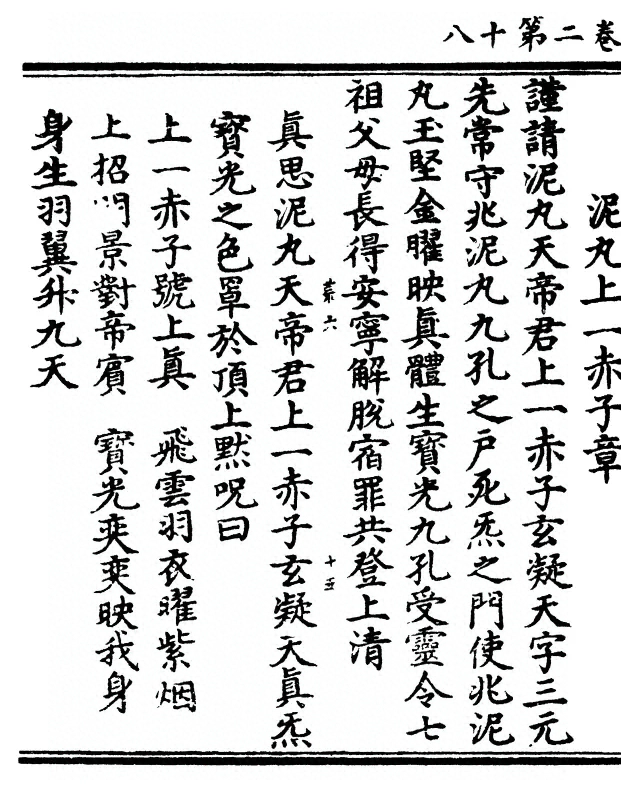 卷二第十八
泥丸上一赤子章
謹請泥丸天帝君上一赤子玄凝天字三元
先常守兆泥丸九孔之戶死炁之門使兆泥
丸玉堅金曜映眞體生寶光九孔受靈令七
祖父母長得安寧解脫宿罪共登上清
眞思泥丸天帝君上一赤子玄凝天眞炁
寶光之色罩於頂上默呪曰
上一赤子號上眞　飛雲羽衣曜紫烟
上招景對帝賓　寶光奕奕映我身
身生羽翼升九天